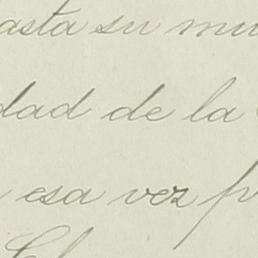 asta su mu
dad de la
esa vez p
El